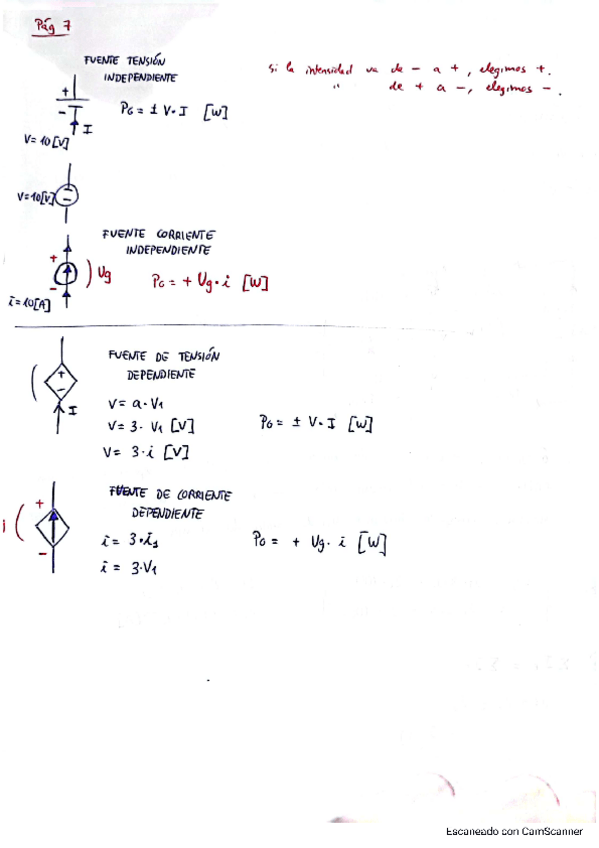 Pág 7
FUENTE TENSIÓN
INDEPENDIENTE
si la intensidad va de - a +, elegimos +.
" de + a -, elegimos -.
+
-
I
PG = ± V·I [W]
V=10[V]
V=10[V]
+
-
FUENTE CORRIENTE
INDEPENDIENTE
+
-
Ug
PG = + Ug·i [W]
i=10[A]
FUENTE DE TENSIÓN
DEPENDIENTE
+
-
I
V= a·V1
V= 3· V1 [V]
PG = ± V·I [W]
V= 3·i [V]
FUENTE DE CORRIENTE
DEPENDIENTE
+
-
i
i= 3·i1
PG = + Ug· i [W]
i = 3·V1
Escaneado con CamScanner